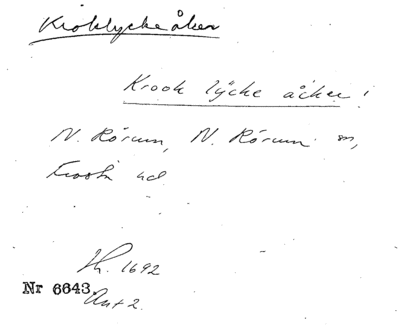 Kroklyckeåker
Krook lÿcke åcker i
N. Rörum, N. Rörum sn,
Frosta hd
Jb. 1692
Nr 6643.
Ant 2.